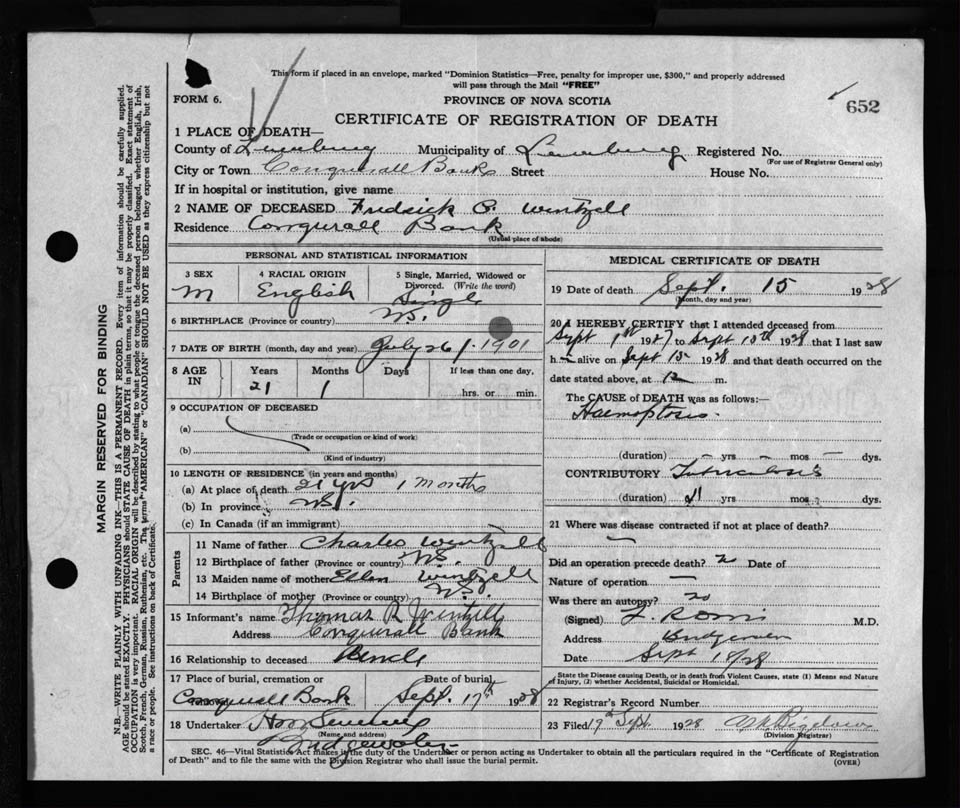 This form if placed in an envelope, marked "Dominion Statistics—Free, penalty for improper use, $300," and properly addressed
will pass through the Mail "FREE"
FORM 6.
PROVINCE OF NOVA SCOTIA
652
CERTIFICATE OF REGISTRATION OF DEATH
1 PLACE OF DEATH—
County of Lunenburg Municipality of Lunenburg Registered No.
(For use of Registrar General only)
City or Town Conquerall Banks Street House No.
If in hospital or institution, give name
2 NAME OF DECEASED Fredrick C. Wintzell
Residence Conqurall Bank
(Usual place of abode)
PERSONAL AND STATISTICAL INFORMATION
3 SEX 4 RACIAL ORIGIN 5 Single, Married, Widowed or
Divorced. (Write the word)
M English Single
6 BIRTHPLACE (Province or country) N.S.
7 DATE OF BIRTH (month, day and year) July 26 1901
8 AGE IN Years Months Days If less than one day,
21 1 hrs. or min.
9 OCCUPATION OF DECEASED
(a)
(Trade or occupation or kind of work)
(b)
(Kind of industry)
10 LENGTH OF RESIDENCE (in years and months)
(a) At place of death 21 yrs 1 months
(b) In province N.S.
(c) In Canada (if an immigrant)
Parents
11 Name of father Charles Wintzell
12 Birthplace of father (Province or country) N.S.
13 Maiden name of mother Ellen Wintzell
14 Birthplace of mother (Province or country) N.S.
15 Informant's name Thomas R Wintzell
Address Conquerall Bank
16 Relationship to deceased
17 Place of burial, cremation or Date of burial
Conquerall Bank Sept. 17th 1928
18 Undertaker
(Name and address)
Bridgewater
MEDICAL CERTIFICATE OF DEATH
19 Date of death Sept. 15 1928
(Month, day and year)
20 I HEREBY CERTIFY that I attended deceased from
Sept 1st 1927 to Sept 15th 1928 that I last saw
h alive on Sept 15 1928 and that death occurred on the
date stated above, at 12 m.
The CAUSE of DEATH was as follows:—
Haemoptosis.
(duration) yrs mos dys.
CONTRIBUTORY Tuberculosis
(duration) yrs mos dys.
21 Where was disease contracted if not at place of death?
Did an operation precede death? No Date of
Nature of operation —
Was there an autopsy? no
(Signed) M.D.
Address
Date Sept 18/28
State the Disease causing Death, or in death from Violent Causes, state (1) Means and Nature
of Injury, (2) whether Accidental, Suicidal or Homicidal.
22 Registrar's Record Number
23 Filed 17th Sept. 1928 Bigelow
(Division Registrar)
SEC. 46—Vital Statistics Act makes it the duty of the Undertaker or person acting as Undertaker to obtain all the particulars required in the "Certificate of Registration
of Death" and to file the same with the Division Registrar who shall issue the burial permit.
(OVER)
MARGIN RESERVED FOR BINDING
N.B.—WRITE PLAINLY WITH UNFADING INK—THIS IS A PERMANENT RECORD. Every item of information should be carefully supplied.
AGE should be stated EXACTLY. PHYSICIANS should STATE CAUSE OF DEATH in plain terms, so that it may be properly classified. Exact statement of
OCCUPATION is very important. RACIAL ORIGIN will be described by stating to what people or tongue the deceased person belonged, whether English, Irish,
Scotch, French, German, Russian, Ruthenian, etc. The terms "AMERICAN" or "CANADIAN" SHOULD NOT BE USED as they express citizenship but not
a race or people. See instructions on back of Certificate.